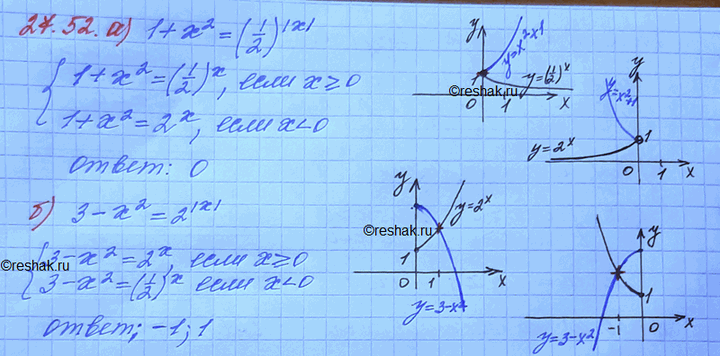 27.52. а) 1+x² = (1/2)^|x|
{ 1+x² = (1/2)^x, если x ≥ 0
1+x² = 2^x, если x < 0
ответ: 0
б) 3-x² = 2^|x|
{ 3-x² = 2^x, если x ≥ 0
3-x² = (1/2)^x если x < 0
ответ; -1; 1
y
y=x²+1
1
y=(1/2)^x
0
1
x
©reshak.ru
y
y=x²+1
y=2^x
1
0
1
x
y
y=2^x
©reshak.ru
1
0
1
x
y=3-x²
y
1
-1
0
x
y=3-x²
©reshak.ru